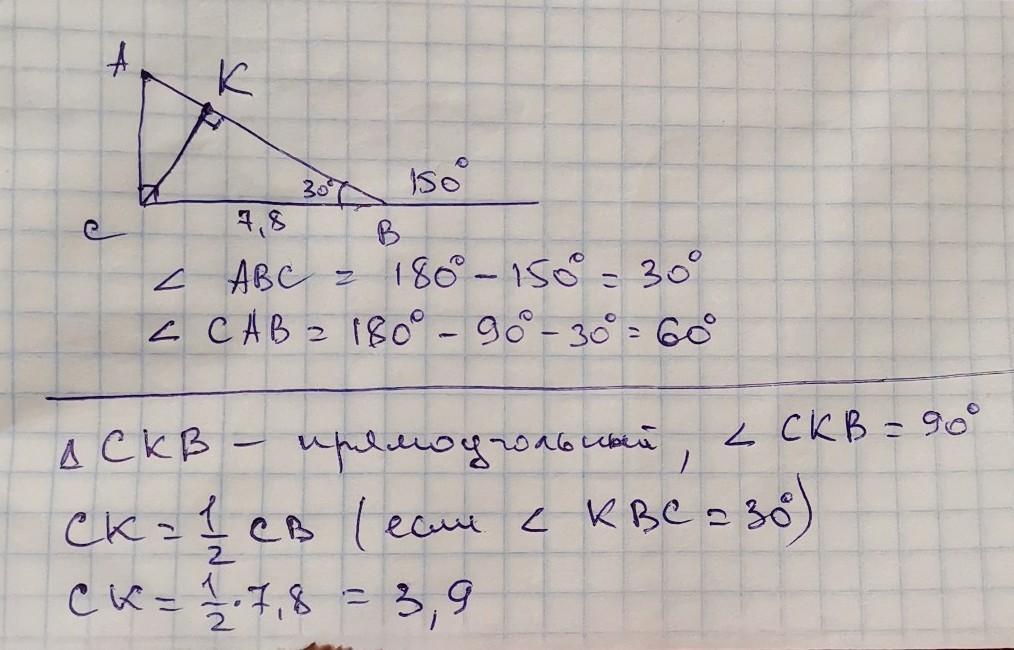 A
K
30° 150°
C 7,8 B
∠ ABC = 180° - 150° = 30°
∠ CAB = 180° - 90° - 30° = 60°
Δ CKB – прямоугольный, ∠ CKB = 90°
CK = 1/2 CB (если ∠ KBC = 30°)
CK = 1/2 · 7,8 = 3,9